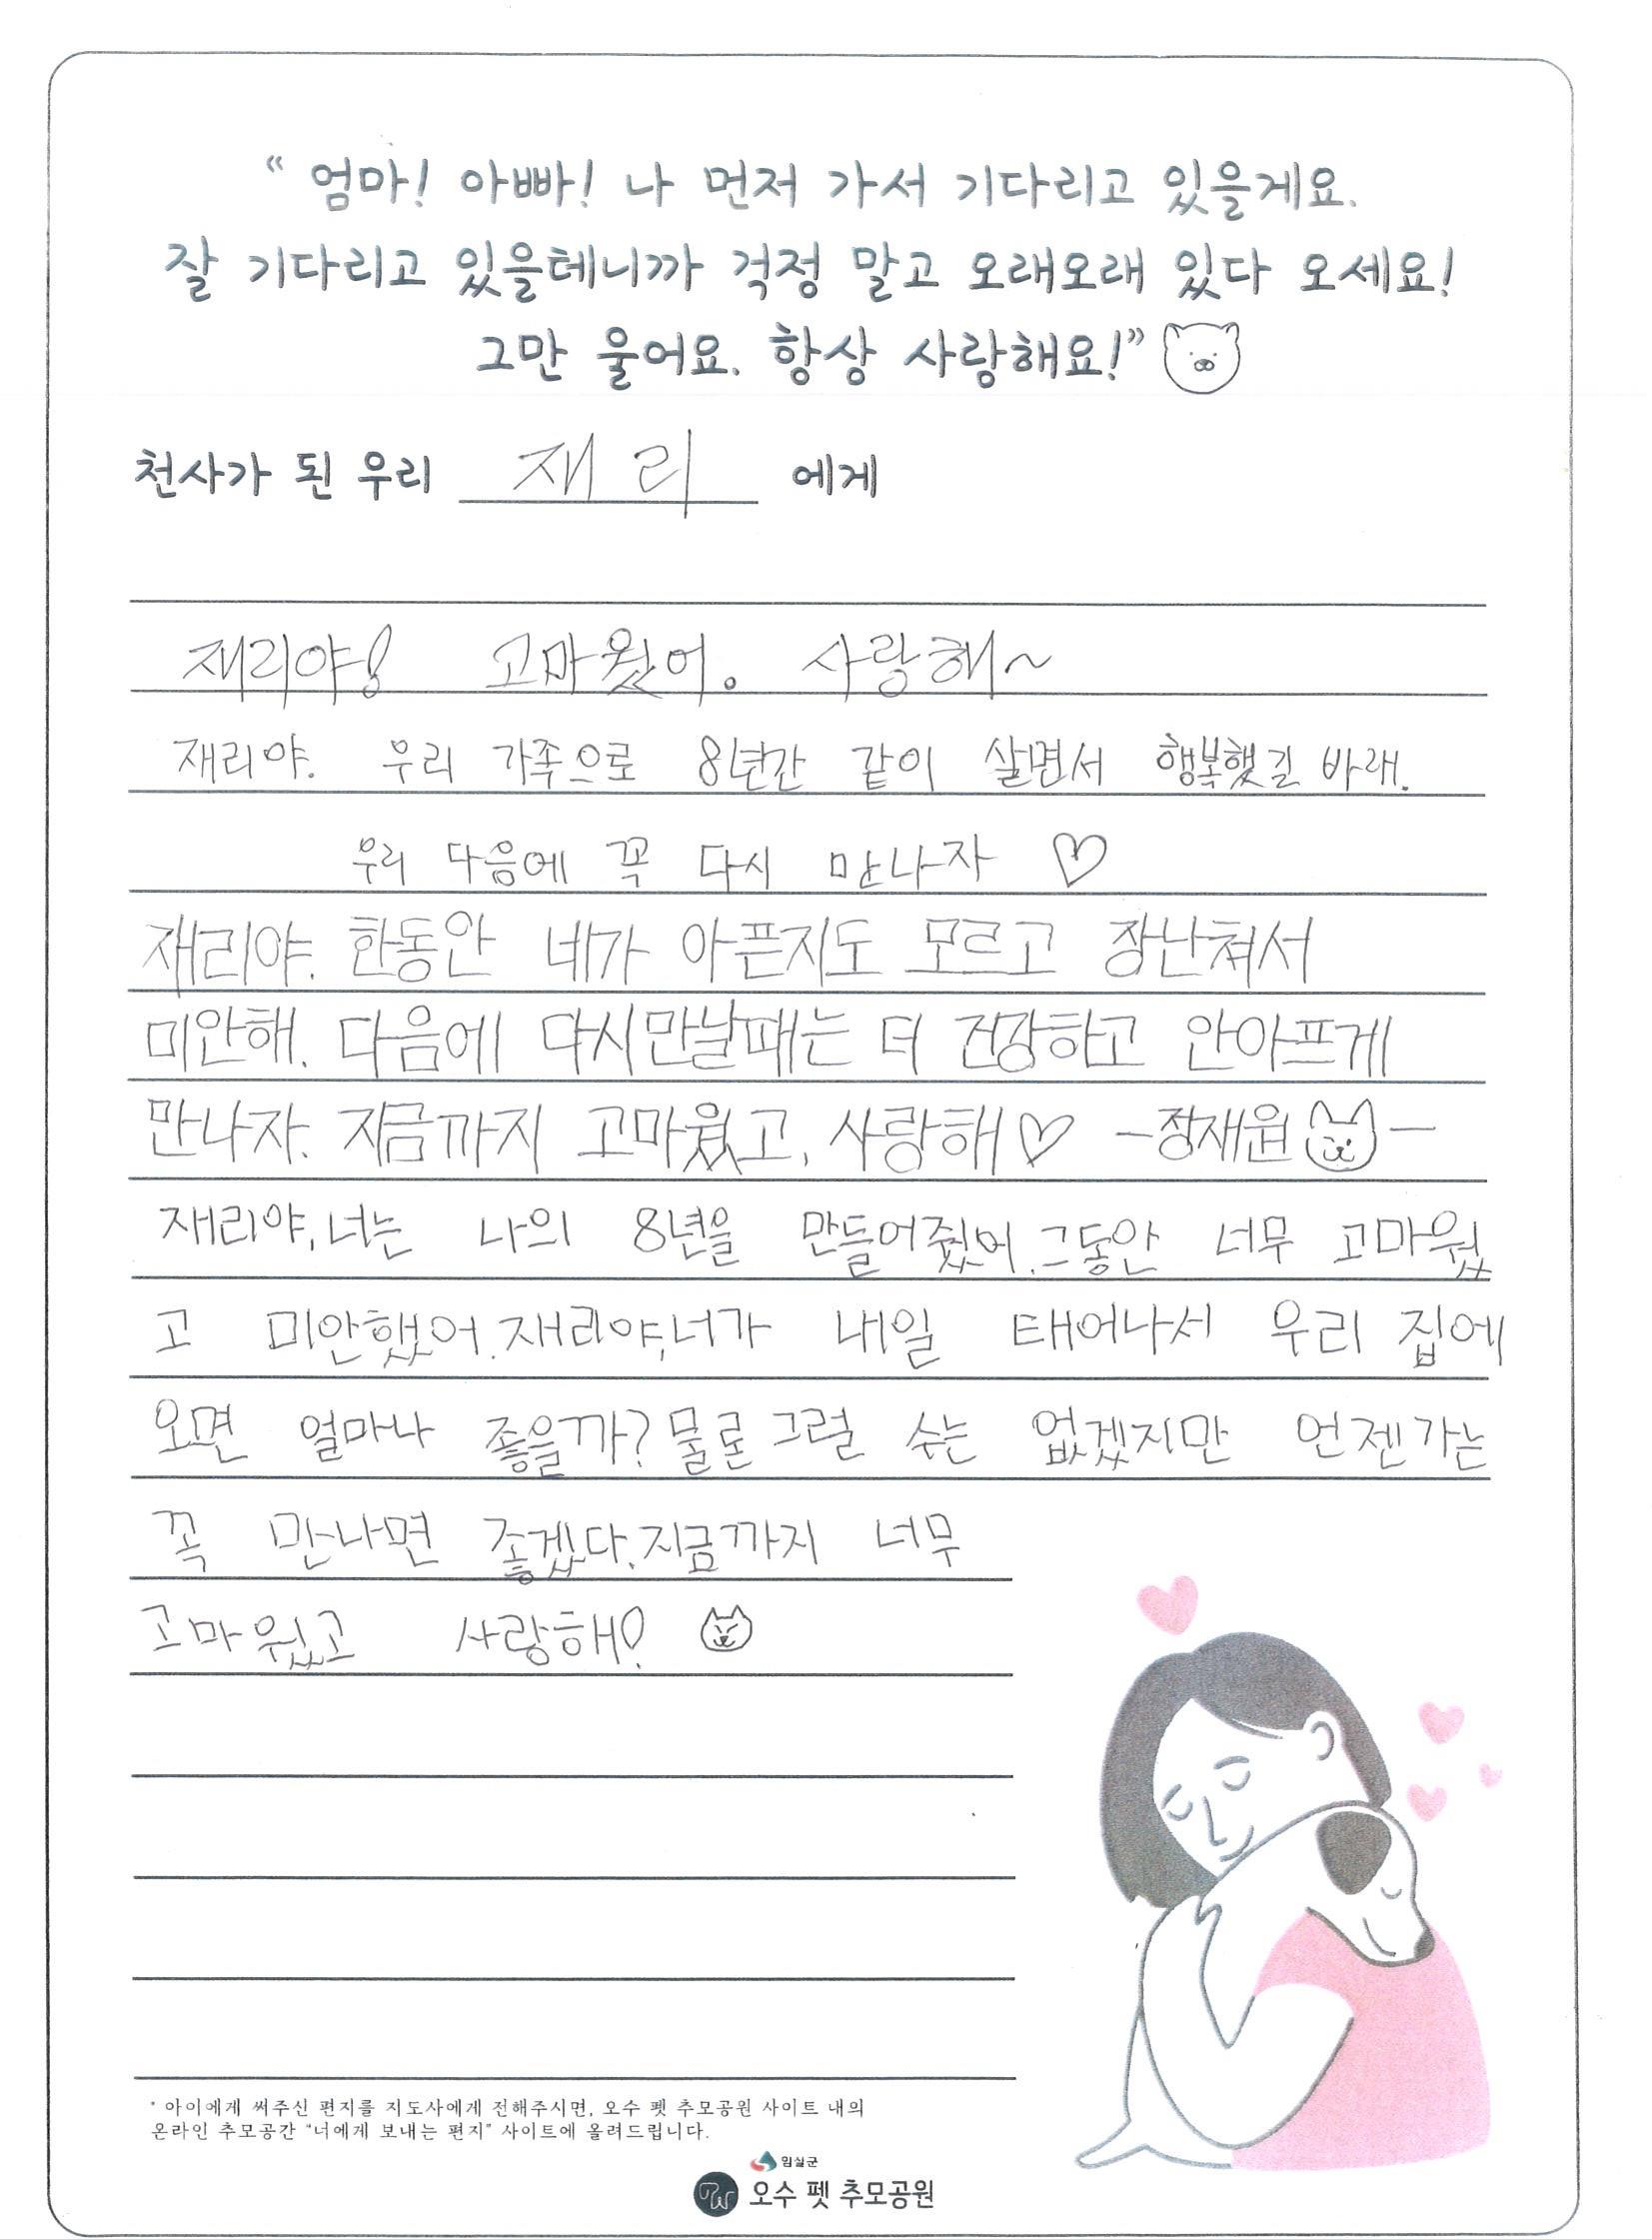 “ 엄마! 아빠! 나 먼저 가서 기다리고 있을게요.
잘 기다리고 있을테니까 걱정 말고 오래오래 있다 오세요!
그만 울어요. 항상 사랑해요!”
천사가 된 우리 재리 에게
재리야! 고마웠어. 사랑해~
재리야. 우리 가족으로 8년간 같이 살면서 행복했길 바래.
우리 다음에 꼭 다시 만나자 ♡
재리야. 한동안 네가 아픈지도 모르고 장난쳐서
미안해. 다음에 다시만날때는 더 건강하고 안아프게
만나자. 지금까지 고마웠고, 사랑해♡ -장재원-
재리야, 너는 나의 8년을 만들어줬어. 그동안 너무 고마웠
고 미안했어. 재리야, 너가 내일 태어나서 우리 집에
오면 얼마나 좋을까? 물론 그럴 수는 없겠지만 언젠가는
꼭 만나면 좋겠다. 지금까지 너무
고마웠고 사랑해!
* 아이에게 써주신 편지를 지도사에게 전해주시면, 오수 펫 추모공원 사이트 내의
온라인 추모공간 “너에게 보내는 편지” 사이트에 올려드립니다.
임실군
오수 펫 추모공원